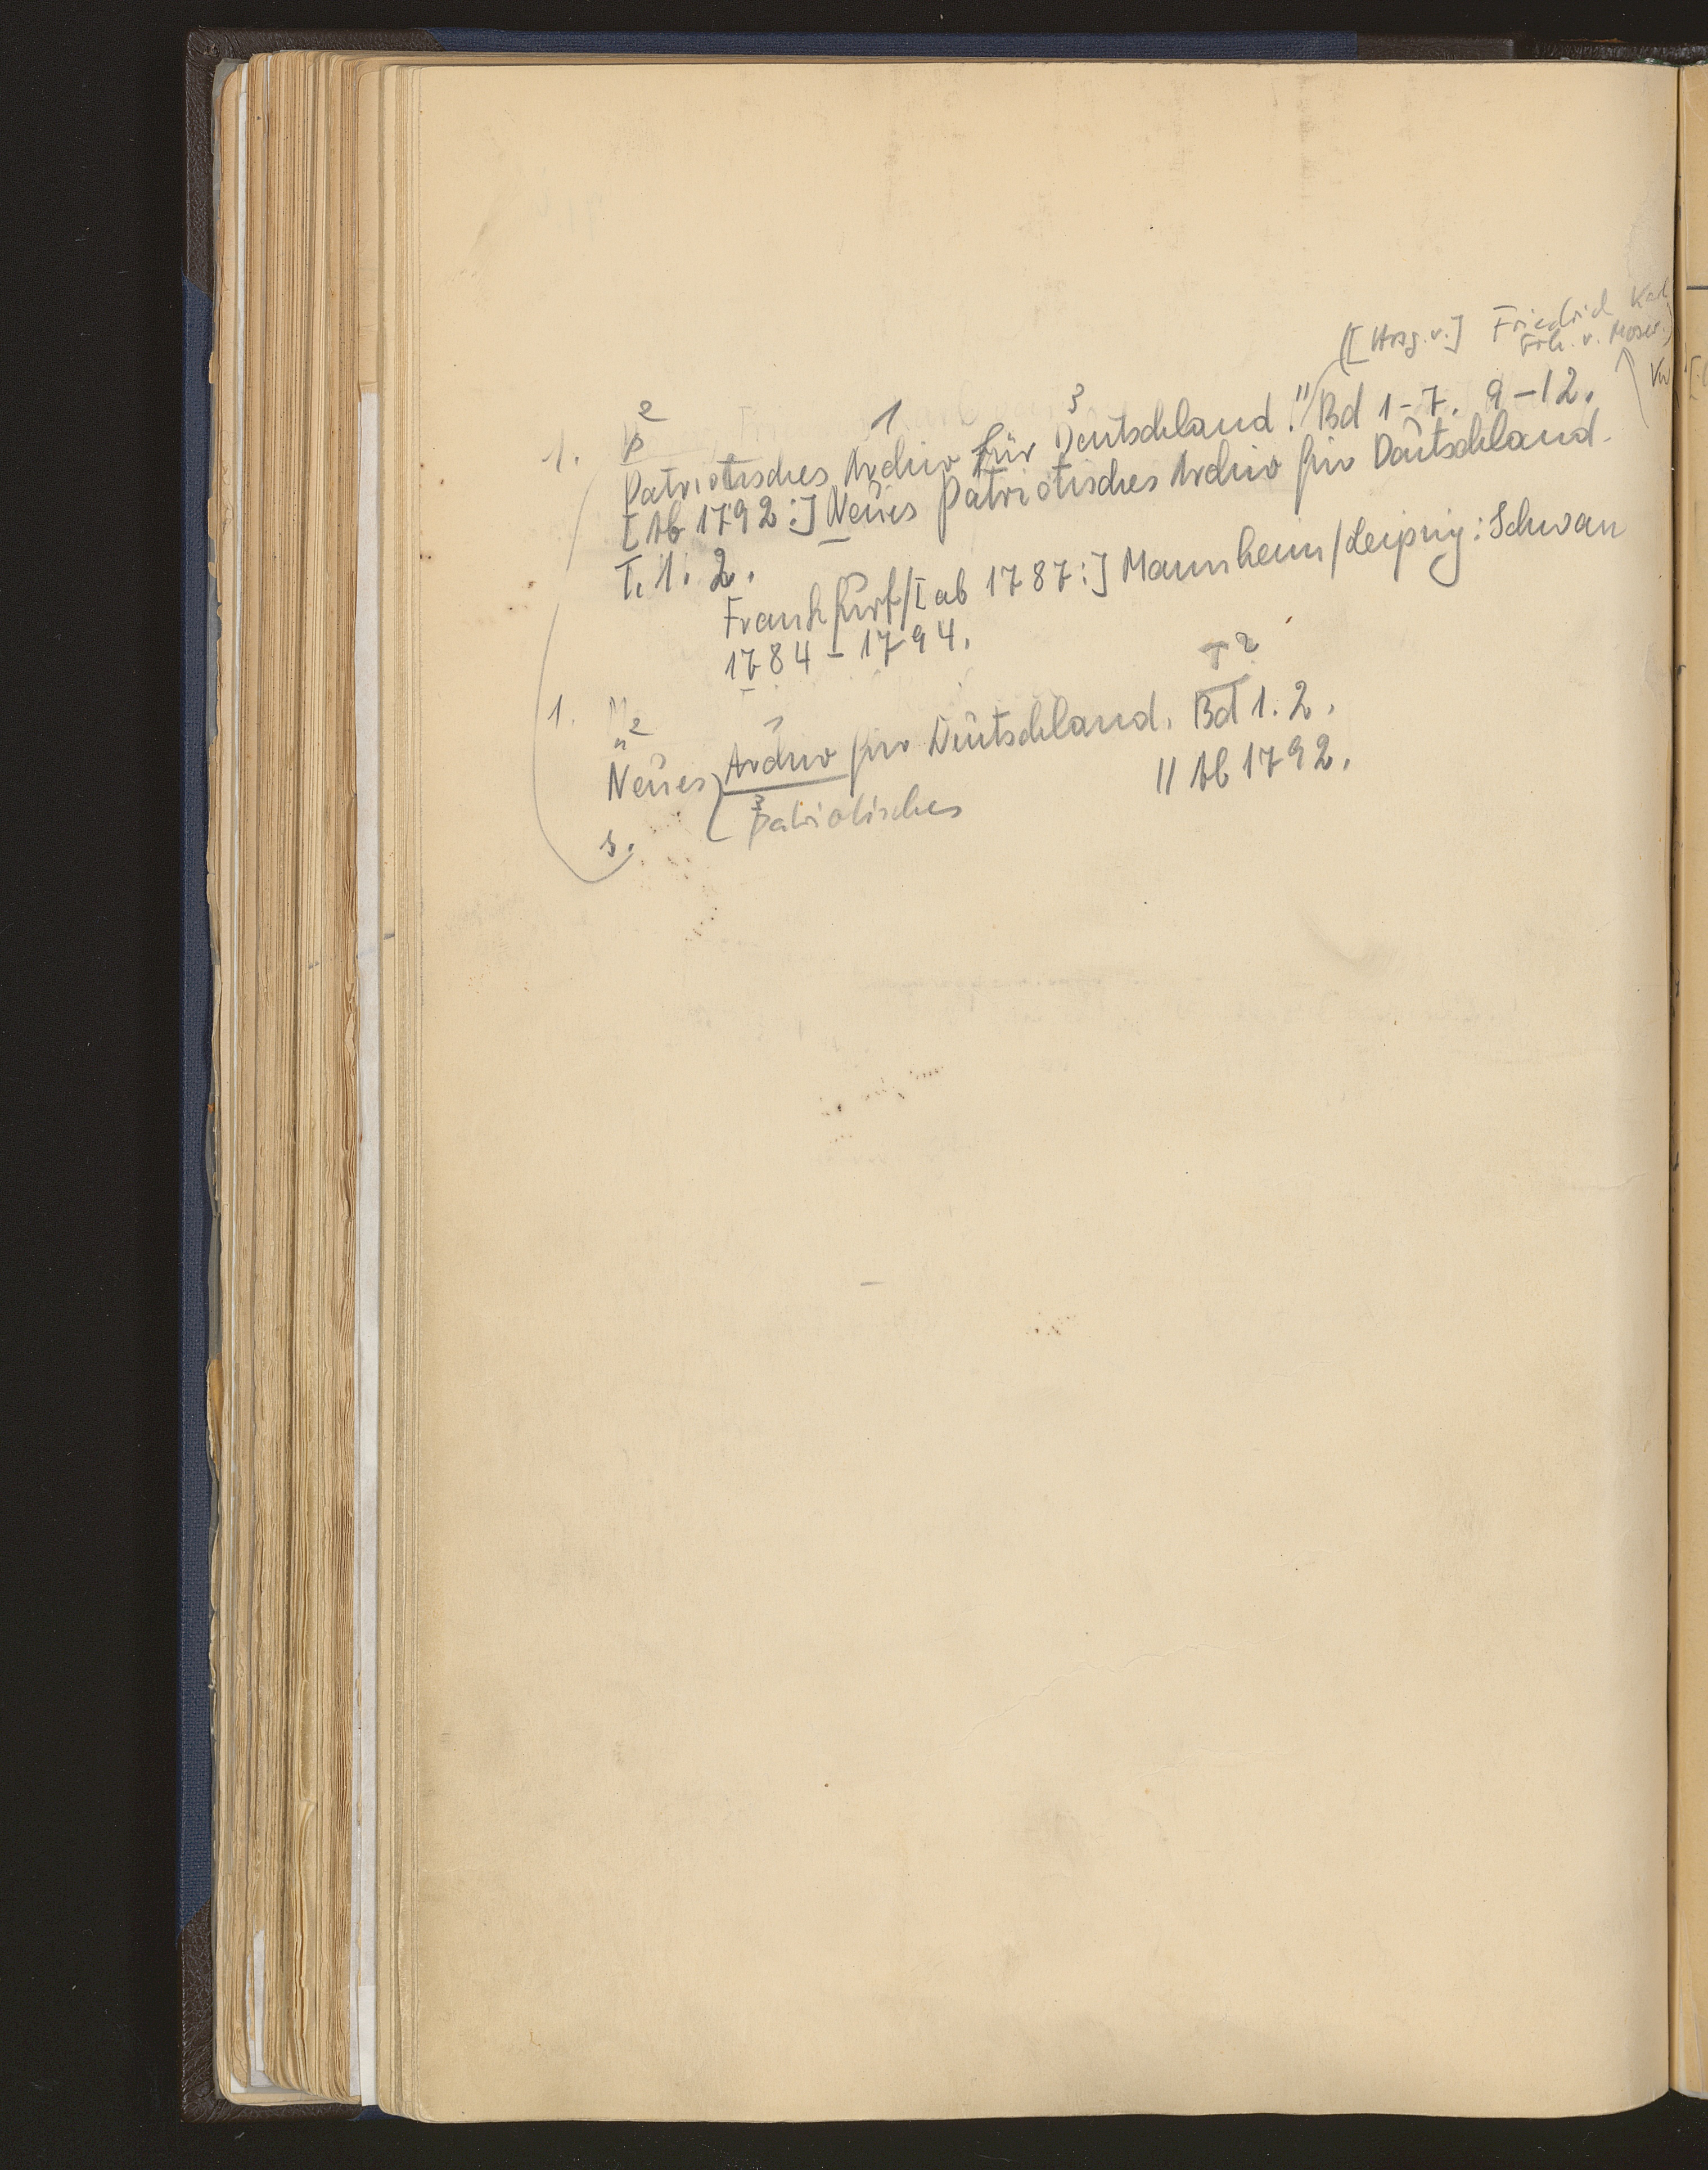 ([Hrsg. v.] Friedrich Karl
Frh. v. Moser.)
2 1 3
1. p
Patriotisches Archiv für Deutschland. || Bd 1-7. 9-12.
[Ab 1792:] Neues patriotisches Archiv für Deutschland.
T. 1. 2.
Frankfurt/[ab 1787:] Mannheim/Leipzig: Schwan
1784-1794.
T 2
1. n 2 1
Neues Archiv für Deutschland. Bd 1. 2.
3 patriotisches || Ab 1792.